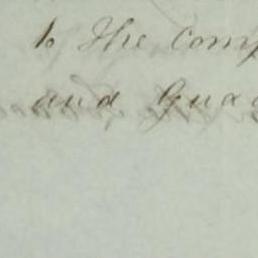 to The Comp
and Gua